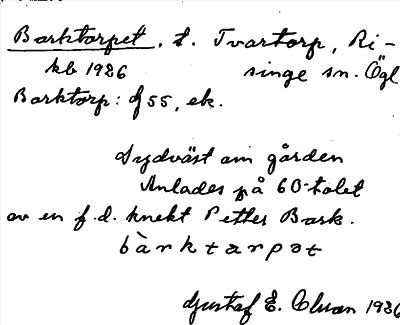 Barktorpet, t. Tvartorp, Ri-
kb 1936 singe sn. Ögl
Barktorp: J 55, ek.
Sydväst om gården
Anlades på 60-talet
av en f.d. knekt Petter Bark.
bàrktɑrpət
Gustaf E. 1936